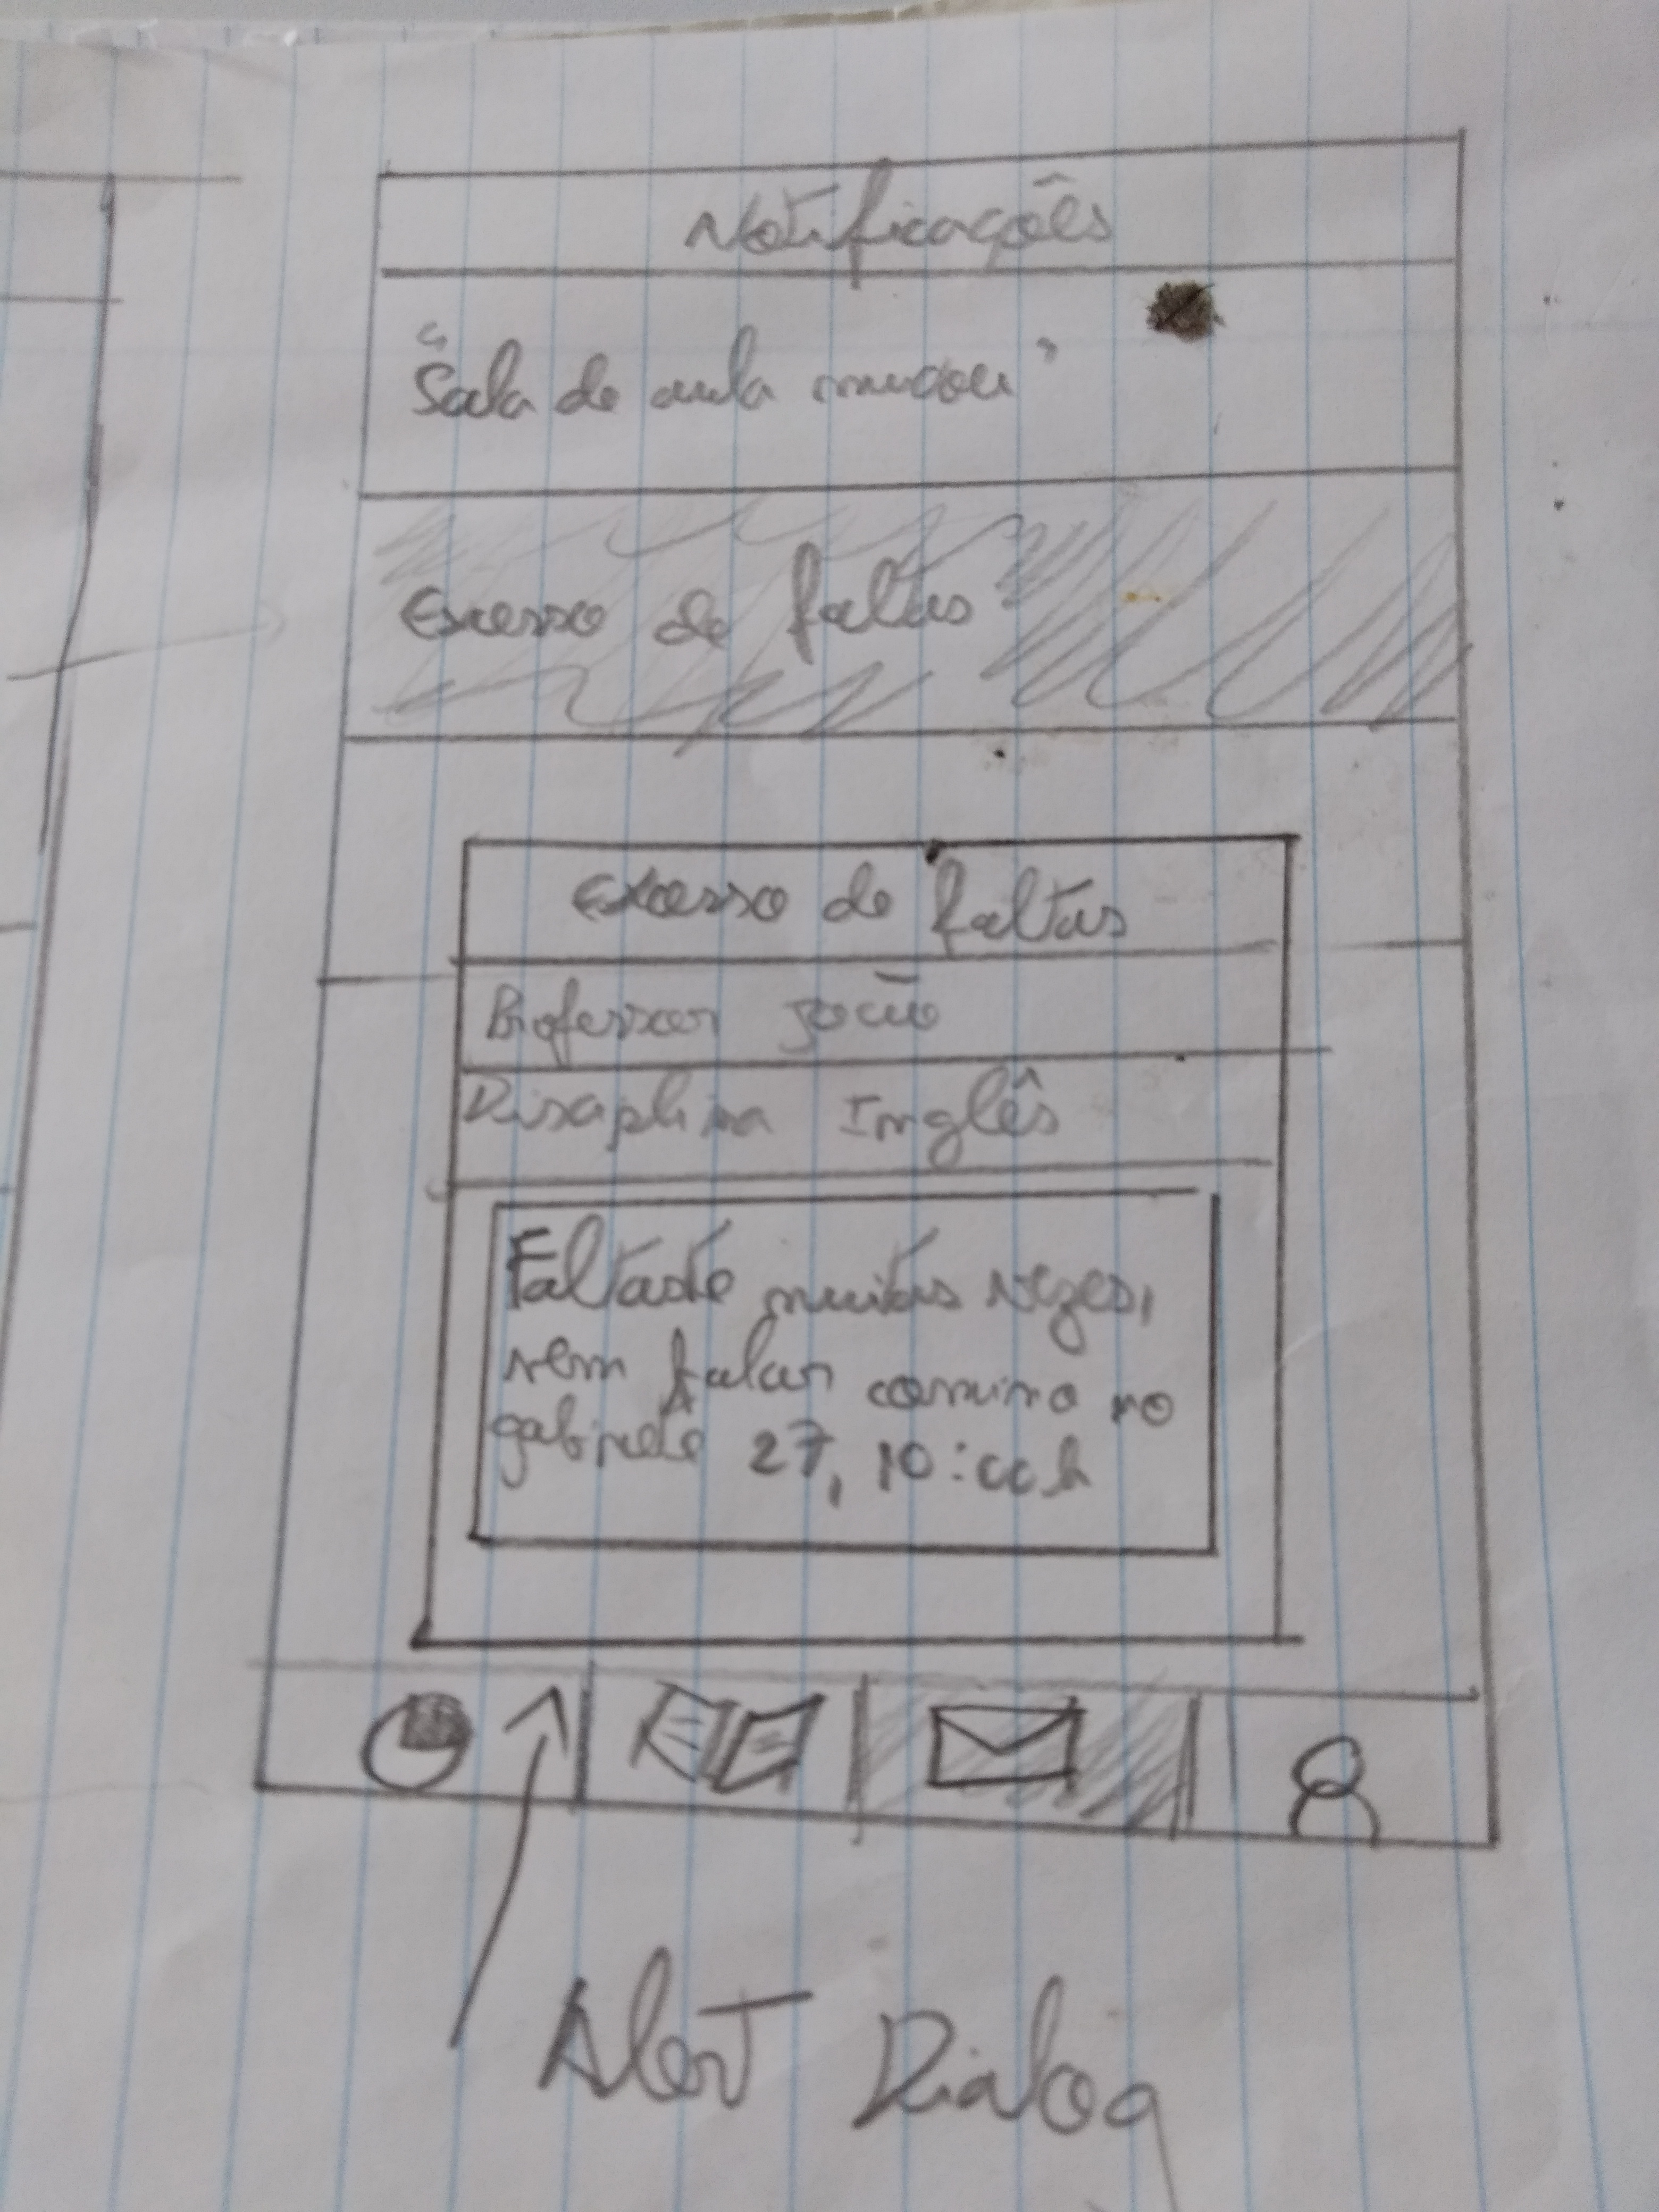 Notificações
"Sala de aula mudou"
Excesso de faltas
Excesso de faltas
Professor João
Disciplina Inglês
Faltaste muitas vezes,
vem falar comigo no
gabinete 27, 10:00h
Alert Dialog